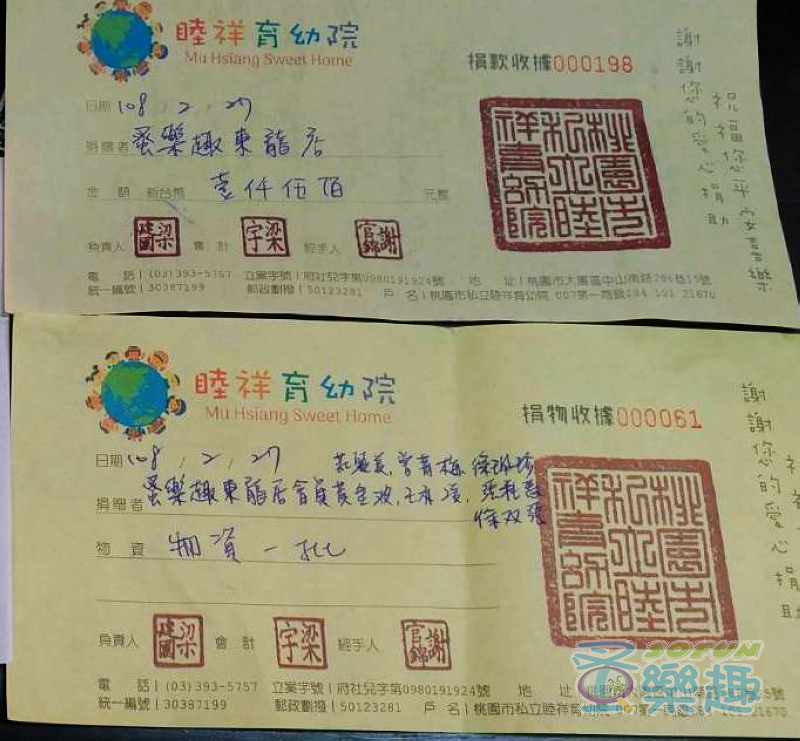 睦祥育幼院
Mu Hsiang Sweet Home
捐款收據000198
日期 108.2.27
捐贈者 蚤樂趣東龍店
金額 新台幣 壹仟伍佰 元整
負責人 梁建國 會計 梁字 經手人 謝官錦
電話 | (03)393-5757 立案字號 | 府社兒字第0980191924號 地址 | 桃園市大園區中山南路286巷15號
統一編號 | 30387199 郵政劃撥 | 50123281 戶名 | 桃園市私立睦祥育幼院 007第一商銀284 101 21670
桃園市私立睦祥育幼院
謝謝您的愛心捐助
祝福您平安喜樂
睦祥育幼院
Mu Hsiang Sweet Home
捐物收據000061
日期 108.2.27
捐贈者 蚤樂趣東龍店會員黃金波
物資 物資一批
負責人 梁建國 會計 梁字 經手人 謝官錦
電話 | (03)393-5757 立案字號 | 府社兒字第0980191924號 地址
統一編號 | 30387199 郵政劃撥 | 50123281 戶名 | 桃園市私立睦祥育幼院 101 21670
桃園市私立睦祥育幼院
謝謝您的愛心捐助
祝福
SOFUN
蚤樂趣